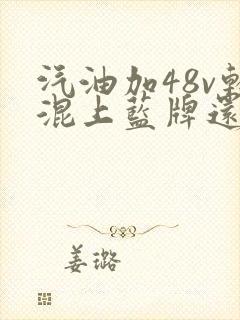 汽油加48v輕
混上藍牌還
姜璐